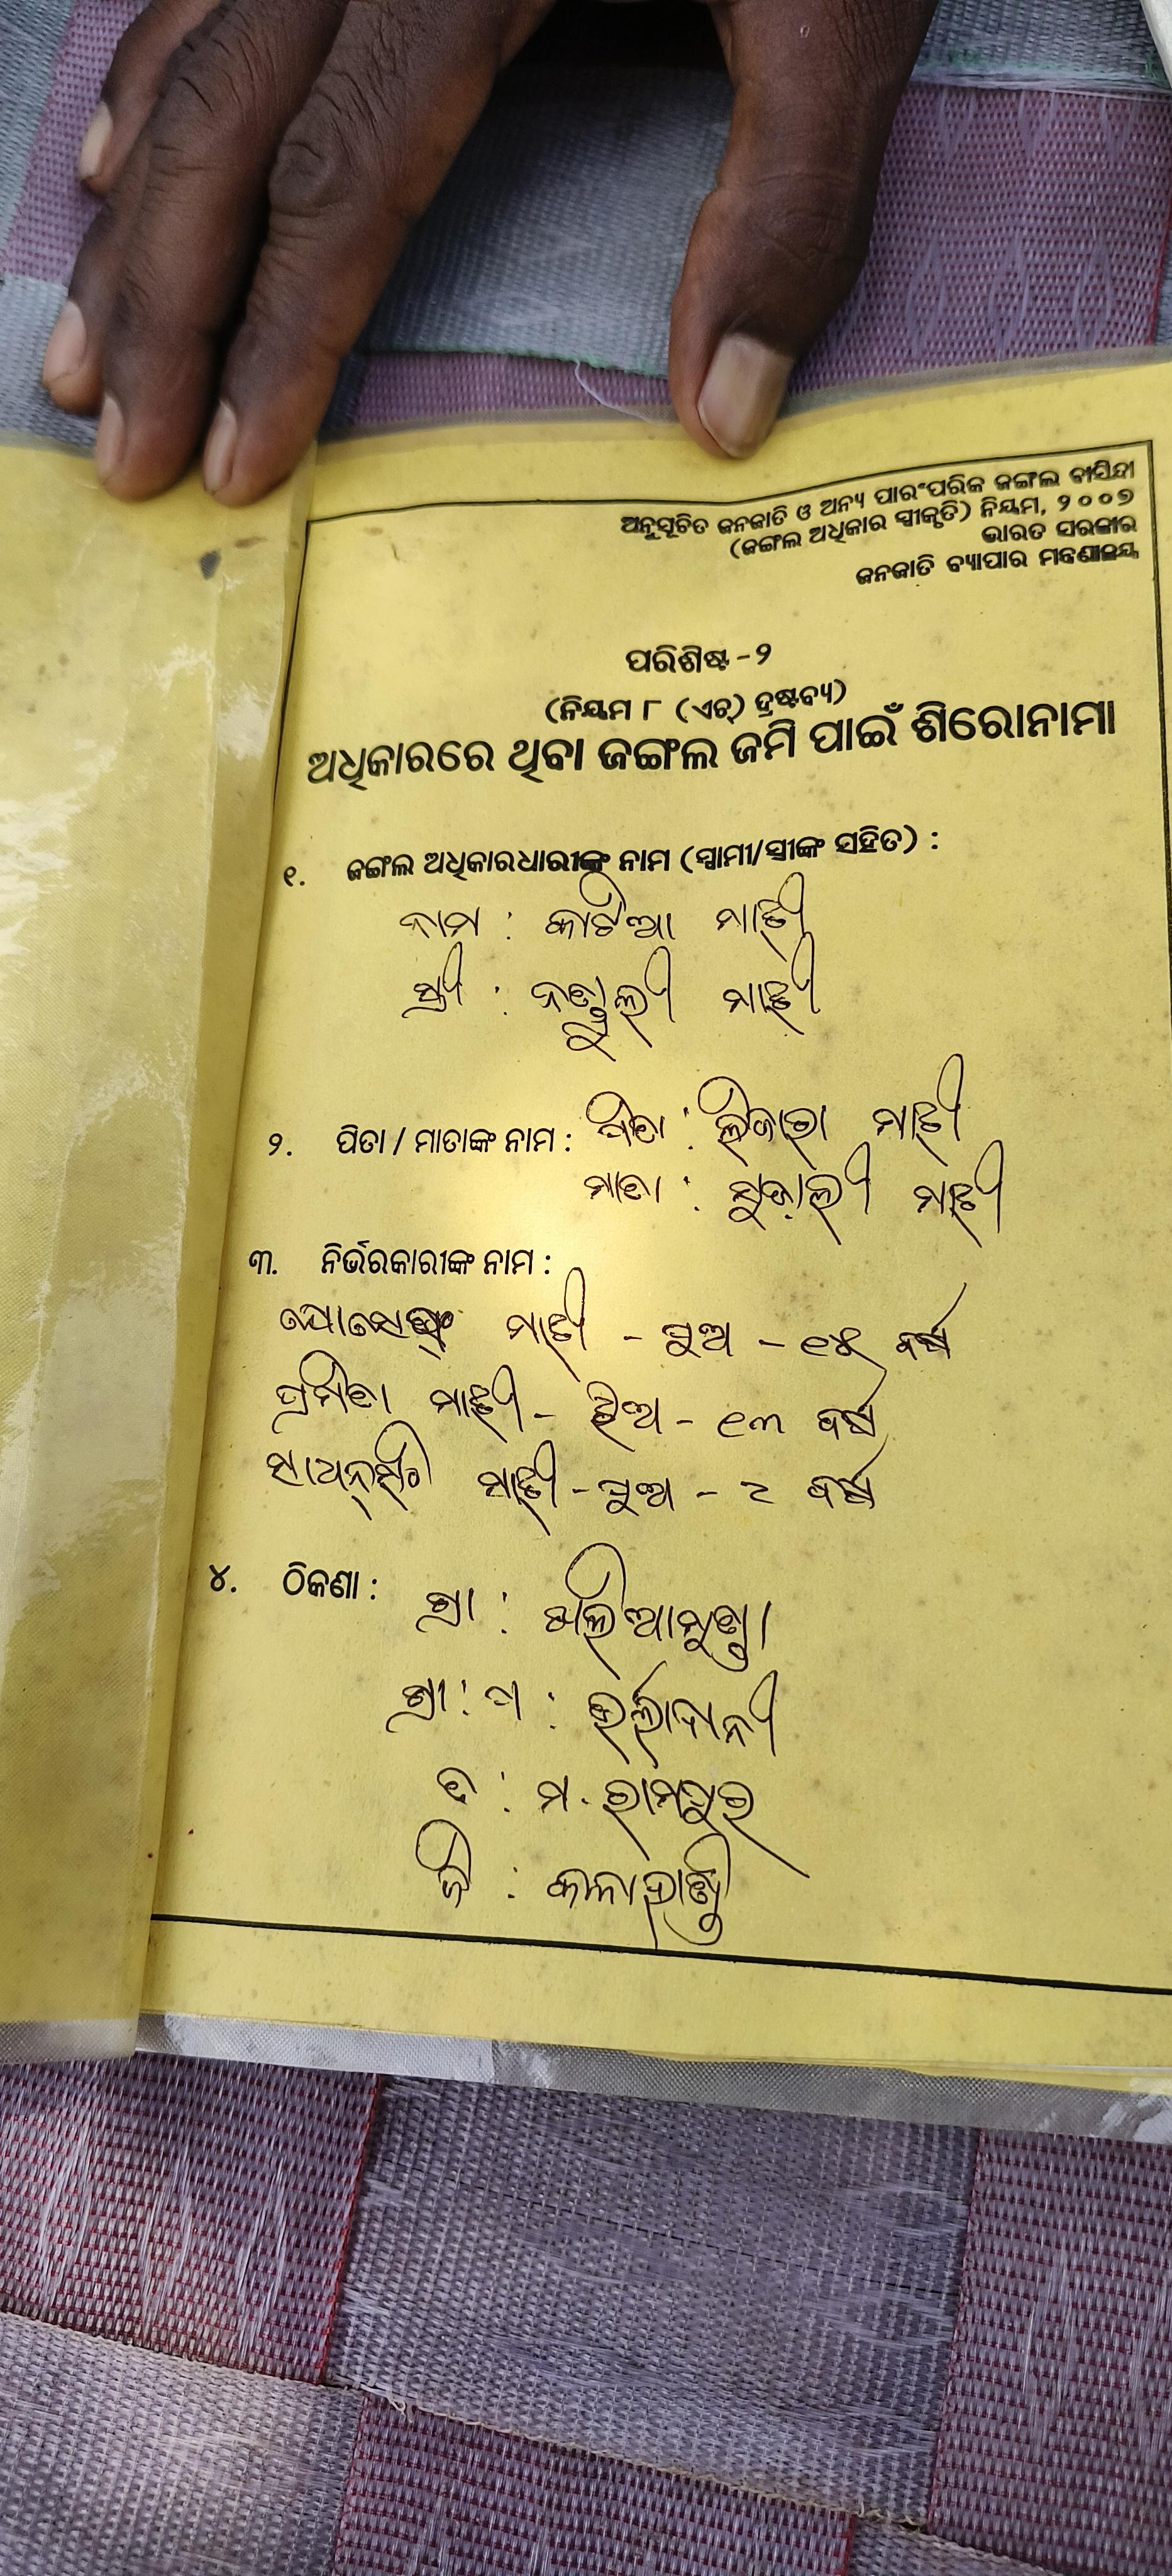 ଅନୁସୂଚିତ ଜନଜାତି ଓ ଅନ୍ୟ ପାରଂପରିକ ଜଙ୍ଗଲ ବାସିନ୍ଦା
(ଜଙ୍ଗଲ ଅଧିକାର ସ୍ୱୀକୃତି) ନିୟମ, ୨୦୦୭
ଭାରତ ସରକାର
ଜନଜାତି ବ୍ୟାପାର ମନ୍ତ୍ରଣାଳୟ
ପରିଶିଷ୍ଟ -୨
(ନିୟମ ୮ (ଏଚ୍) ଦ୍ରଷ୍ଟବ୍ୟ)
ଅଧିକାରରେ ଥିବା ଜଙ୍ଗଲ ଜମି ପାଇଁ ଶିରୋନାମା
୧. ଜଙ୍ଗଲ ଅଧିକାରଧାରୀଙ୍କ ନାମ (ସ୍ୱାମୀ/ସ୍ତ୍ରୀଙ୍କ ସହିତ) :
ନାମ : କାଟିଆ ମାଝୀ
ସ୍ତ୍ରୀ : ମାଝୀ
୨. ପିତା / ମାତାଙ୍କ ନାମ : ପିତା : ମାଝୀ
ମାତା : ମାଝୀ
୩. ନିର୍ଭରକାରୀଙ୍କ ନାମ :
ମାଝୀ - ପୁଅ - ୧୫ ବର୍ଷ
ପ୍ରମିତା ମାଝୀ - ଝିଅ - ୧୩ ବର୍ଷ
ମାଝୀ - ପୁଅ - ୨ ବର୍ଷ
୪. ଠିକଣା : ଗ୍ରା : ଖଲିଆମୁଣ୍ଡା
ଗ୍ରା : ପ : ଉର୍ଲାଦାନୀ
ବ : ମ. ରାମପୁର
ଜି : କଳାହାଣ୍ଡି